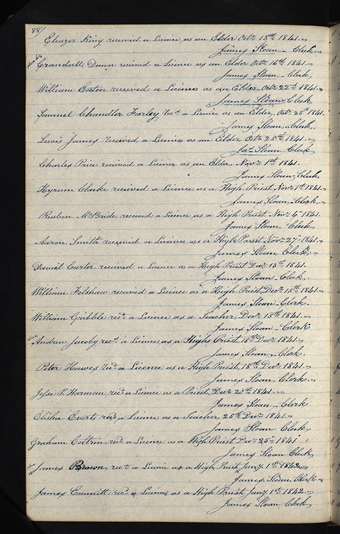 88
Eleazer King received a Licence as an Elder Octr 15th 1841.
James Sloan Clerk
Crandall Dunn received a Licence as an Elder Octr 16th 1841.
James Sloan Clerk
William Easton received a Licence as an Elder, Octr 22nd 1841.
James Sloan Clerk
Samuel Chandler Farley recd a Licence as an Elder, Octr 25th 1841.
James Sloan Clerk
Lewis James received a Licence as an Elder Octr 28th 1841.
Jas Sloan Clerk
Charles Price received a Licence as an Elder Novr 1st 1841.
James Sloan Clerk
Hyrum Clarke received a Licence as a High Priest Novr 1st 1841.
James Sloan Clerk
Reuben McBride received a Licence as a High Priest Novr 6th 1841.
James Sloan Clerk
Aaron Smith received a Licence as a High Priest Novr 27th 1841.
James Sloan Clerk
Daniel Carter received a Licence as a High Priest Decr 13th 1841.
James Sloan Clerk
William Felshaw received a Licence as a High Priest Decr 15th 1841.
James Sloan Clerk
William Gribble recd a Licence as a Teacher Decr 18th 1841.
James Sloan Clerk
Andrew recd a Licence as a High Priest 18th Decr 1841.
James Sloan Clerk
Peter Hawes recd a Licence as a High Priest 18th Decr 1841.
James Sloan Clerk
P. Harmon recd a Licence as a Priest, Decr 1841.
James Sloan Clerk
Elisha Everts recd a Licence as a Teacher, 25th Decr 1841.
James Sloan Clerk
Graham Coltrin recd a Licence as a High Priest Decr 25th 1841.
James Sloan Clerk
James Brown recd a Licence as a High Priest Jany 1st 1842.
James Sloan Clerk
James Emmett recd a Licence as a High Priest Jany 1st 1842.
James Sloan Clerk